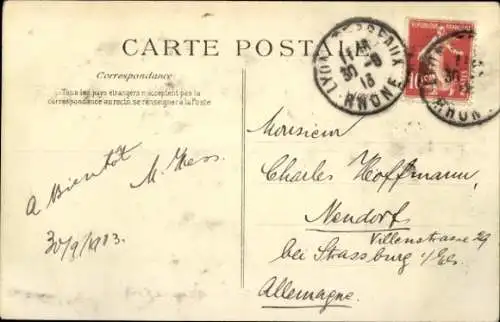 CARTE POSTALE
Correspondance
Tous les pays étrangers n'acceptent pas la
correspondance au recto, se renseigner à la Poste
A Bientôt
M. Hess.
30/9/1913.
LYON TERREAUX
30 - 9
13
RHONE
REPUBLIQUE FRANÇAISE
10
RHONE
Monsieur
Charles Hoffmann,
Neudorf
Villenstrasse 29
bei Strassburg i/Els.
Allemagne.